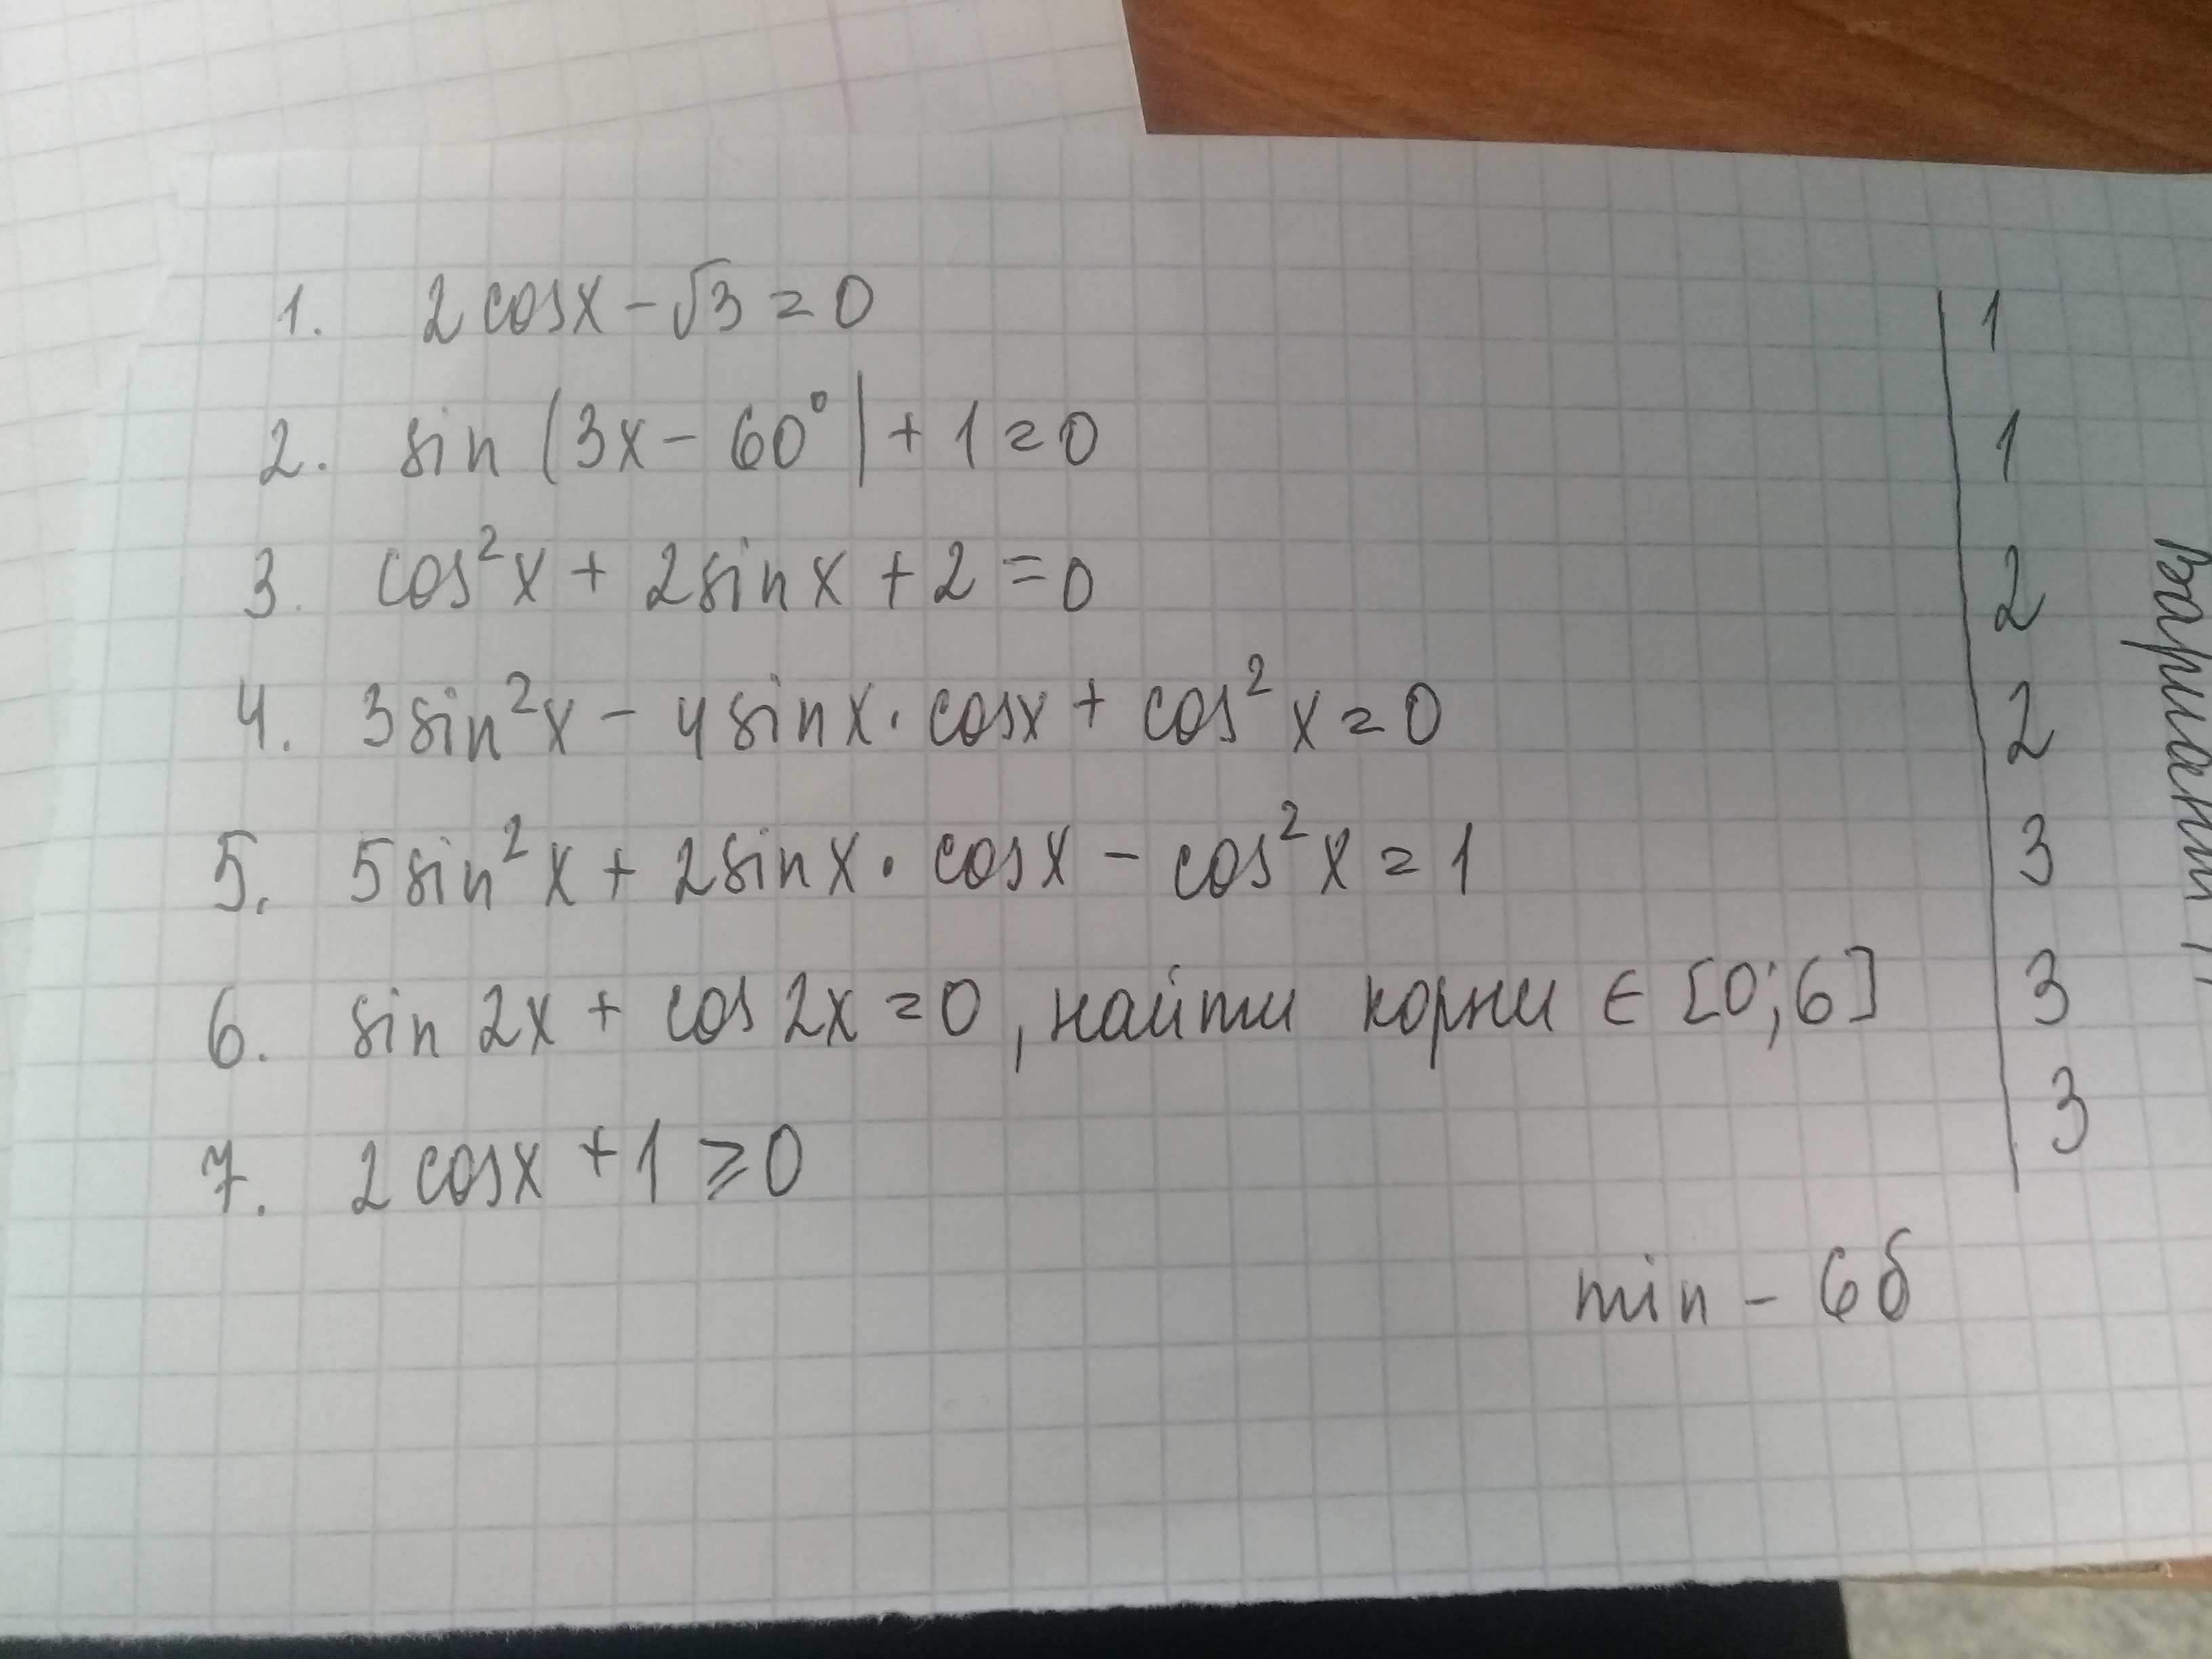 1. 2 cosx - √3 = 0 | 1
2. sin (3x - 60°) + 1 = 0 | 1
3. cos²x + 2 sinx + 2 = 0 | 2
4. 3 sin²x - 4 sinx · cosx + cos²x = 0 | 2
5. 5 sin²x + 2 sinx · cosx - cos²x = 1 | 3
6. sin 2x + cos 2x = 0, найти корни ∈ [0;6] | 3
7. 2 cosx + 1 ⩾ 0 | 3
min - 6б
Вариант